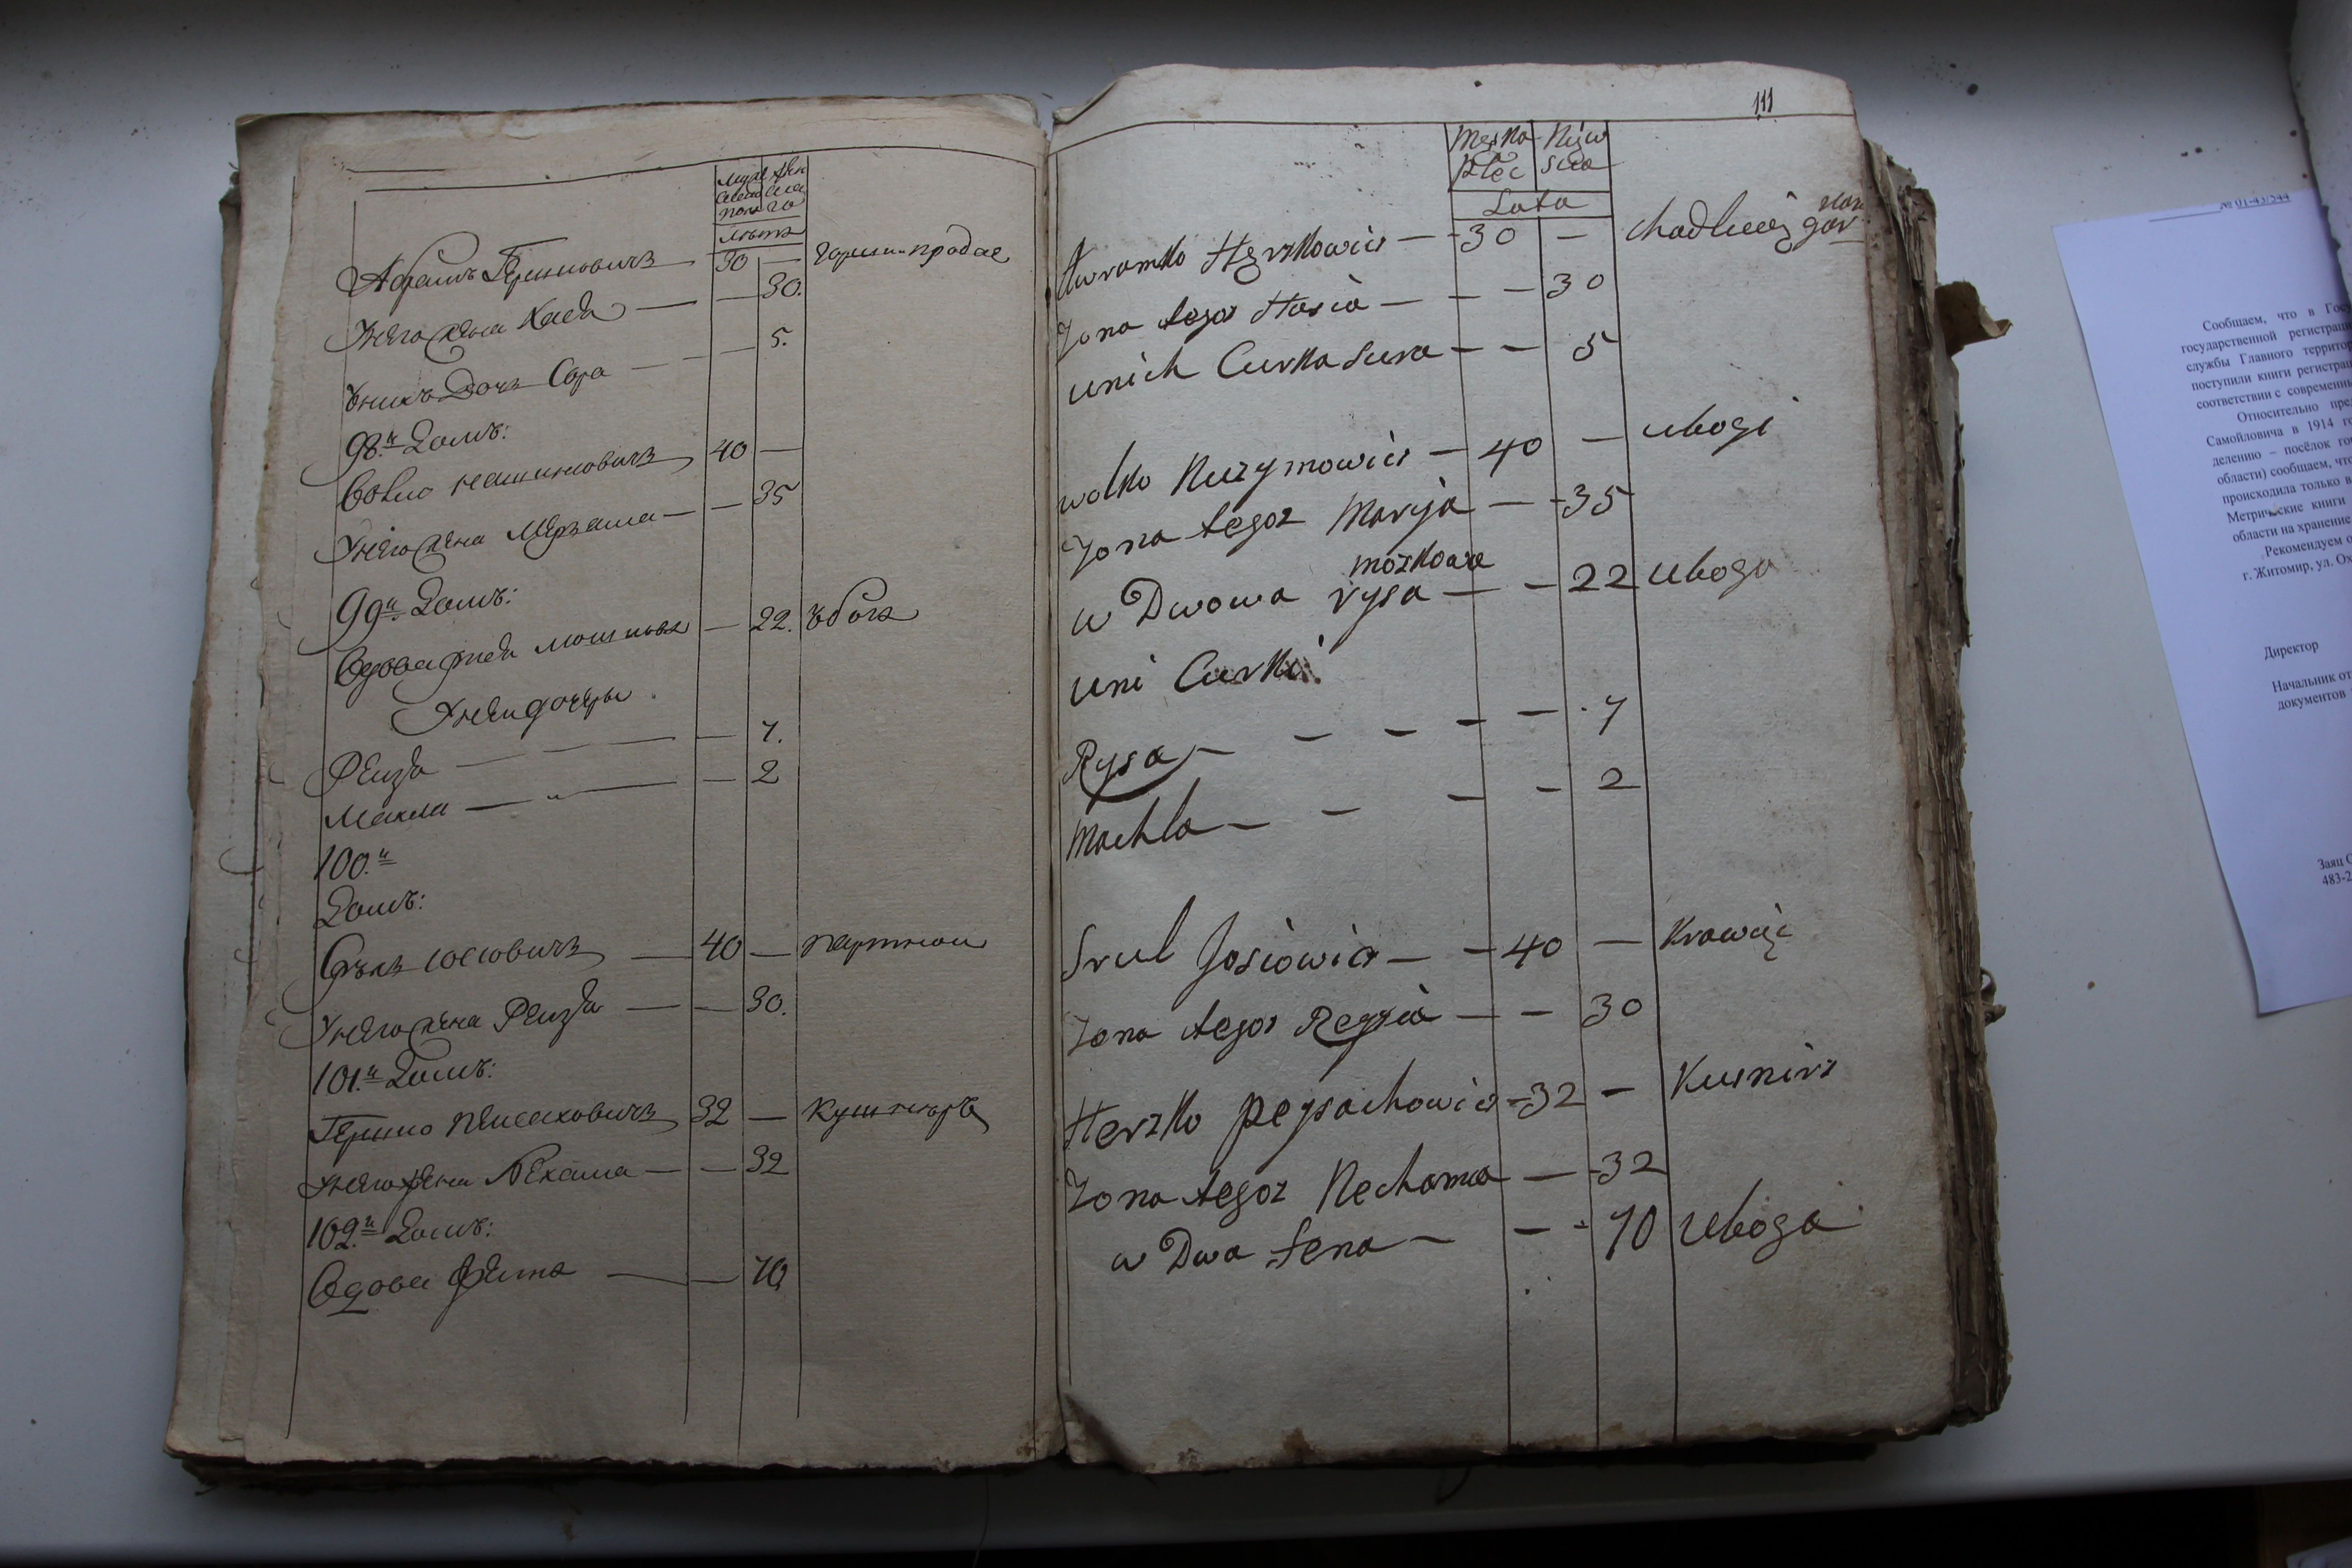 Муже Жен
ска
пола го
лѣта
Абрамъ Гершковичъ 30 — горелки продае
У него жена Хася — — 30.
У нихъ Дочь Сора — — 5.
98.й Домъ:
Волко 40 —
У него жена — — 35
99.й Домъ:
Вдова мошкова — 22. Убога
У неи дочеры
Рейзя — — 7.
Махля — — 2
100.й
Домъ:
Сруль Иосиовичъ — 40 —
У него жена Рейзя — — 30.
101.й Домъ:
Гершко Пейсаховичъ 32 — кушнѣръ
У него жена Нехама — — 32
102.й Домъ:
Вдова — — 70
111
Męska Niew
płec scia
Lata
Awramko Herszkowicz — 30 —
Zona tegoz Hasia — — — 30
unich Curka Sura — — 5
wolko — 40 — ubogi
Zona tegoz Maryja — — 35
moszkowa
w Dwowa rysa — — 22 uboga
uni Curki
Rysa — — — — — 7
Machla — — — — 2
Srul Josiowicz — — 40 — Krawiec
Zona tegoz Reyzia — — 30
Herszko peysachowicz — 32 — Kusnirz
Zona tegoz Nechama — — 32
w Dwa — — — 70 Uboga
№ 01-43/544
Сообщаем, что в Госу
государственной регистрац
службы Главного территор
поступили книги регистрац
соответствии с современны
Относительно пред
Самойловича в 1914 го
делению – посёлок гор
области) сообщаем, что
происходила только в
Метрические книги
области на хранение
Рекомендуем о
г. Житомир, ул. Ох
Директор
Начальник от
документов
Заяц С
483-2